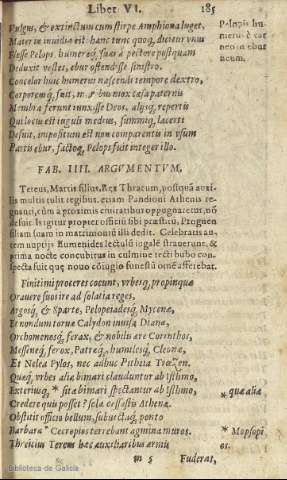 Liber VI. 185
Vulgus, & extinctum cum stirpe Amphiona luget.
Mater in inuidia est: hanc tunc quoq́, dicitur vnus
Flesse Pelops, humeroq́, suas à pectore postquam
Deduxit vestes, ebur ostendisse sinistro.
Concolor huic humerus nascendi tempore dextro,
Corporeusq́, fuit, manibus mox cæsa paternis
Membra ferunt iunxisse Deos, alijsq́, repertis
Qui locus est iuguli medius, summiq́, lacerti
Defuit, impositum est non comparentis in vsum
Partis ebur, factoq́, Pelops fuit integer illo.
Pelopis hu-
merus è car
ne in ebur
FAB. IIII. ARGVMENTVM.
Tereus, Martis filius, Rex Thracum, postquā auxi-
lijs multis tulit regibus, etiam Pandioni Athenis re-
gnanti, cùm à proximis ciuitatibus oppugnaretur, nō
defuit. Is igitur propter officiū sibi præstitū, Prognen
filiam suam in matrimoniū illi dedit. Celebratis au-
tem nuptijs Eumenides lectulū iogalē strauerunt, &
prima nocte concubitus in culmine tecti bubo con-
specta fuit quę nouo cōiugio funestū omē afferebat.
Finitimi proceres coeunt, vrbesq́, propinquæ
Orauere suos ire ad solatia reges.
Argosq́, & Sparte, Pelopeiadesq́, Mycenæ,
Et nondum toruæ Calydon inuisa Dianæ,
Orchomenosq́, ferax, & nobilis ære Corinthos,
Messeneq́, ferox, Patreq́, humilesq́, Cleonæ,
Et Nelea Pylos, nec adhuc Pittheia Trœzen.
Quæq́, vrbes aliæ bimari clauduntur ab isthmo,
Exteriusq́, * sitæ bimari spectantur ab isthmo,
* quæ aliæ
Credere quis posset? sola cessastis Athenæ.
Obstitit officio bellum, subuectaq́, ponto
Barbara * Cecropios terrebant agmina muros.
* Mopsopi
os.
Threicius Tereus hæc auxiliaribus armis
m 5 Fuderat,
Biblioteca de Galicia